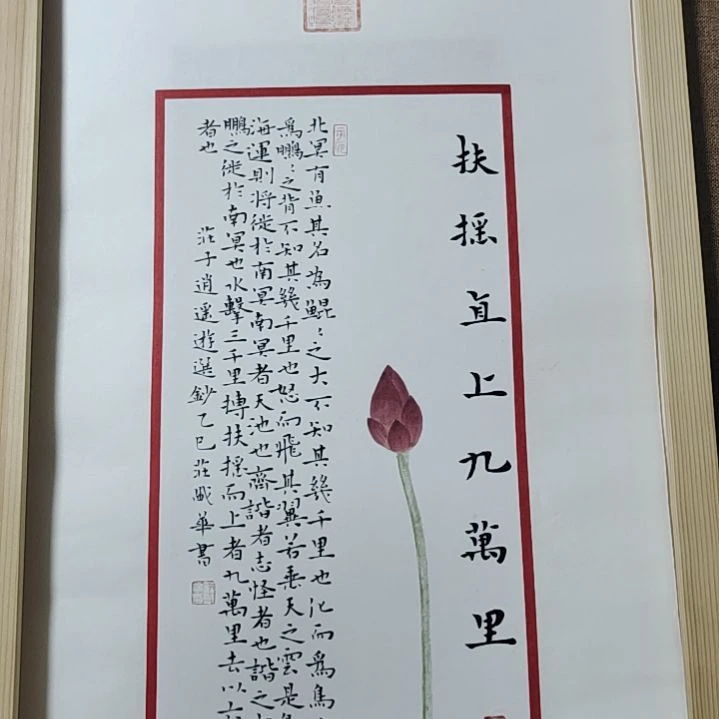 扶摇直上九萬里
北冥有魚其名為鯤〻之大不知其幾千里也化而為鳥
為鵬〻之背不知其幾千里也怒而飛其翼若垂天之雲是
海運則將徙於南冥南冥者天池也齊諧者志怪者也諧之
鵬之徙於南冥也水擊三千里摶扶摇而上者九萬里去以六
者也
莊子逍遥遊選鈔乙巳莊 華書